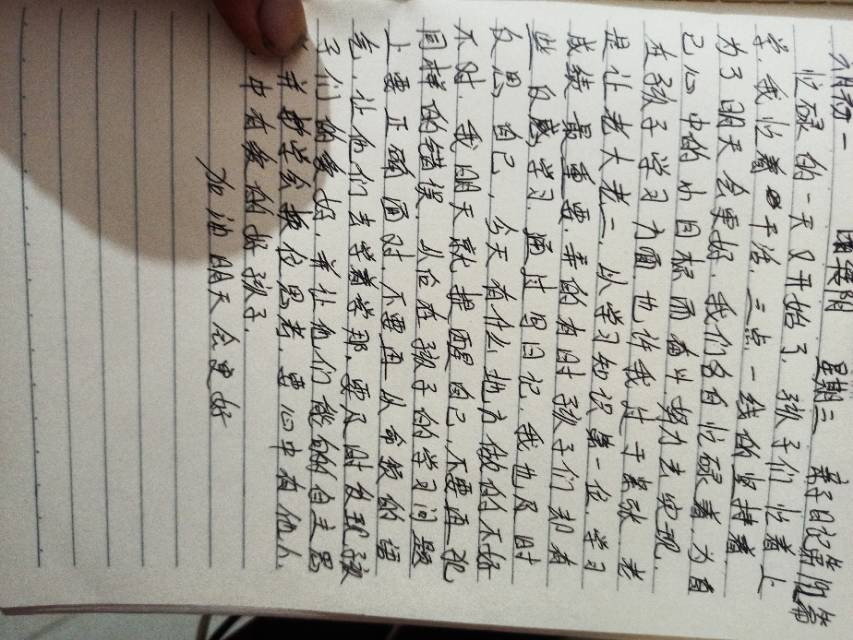 六月初一 晴转阴 星期二 亲子日记第九篇
忙碌的一天又开始了，孩子们忙着上
学，我忙着干活，三点一线的坚持着
为了明天会更好，我们各自忙碌着，为自
己心中的小目标而奋斗努力去实现，
在孩子学习方面也许我过于紧张，老
是让老大老二，以学习知识第一位，学习
成绩最重要，弄的有时孩子们却有
些反感学习，通过写日记，我也及时
反思自己，今天有什么地方做的不好
不对，我明天就提醒自己，不要再犯
同样的错误，从他在孩子的学习问题
上要正确面对，不要再以命令的语
气，让他们去学着学那，要及时发现孩
子们的爱好，并让他们能够自主思
考学会换位思考，要心中有他人
中有爱的好孩子，
加油明天会更好